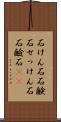 石けん石石鹸
石せっけん石
石鹼石